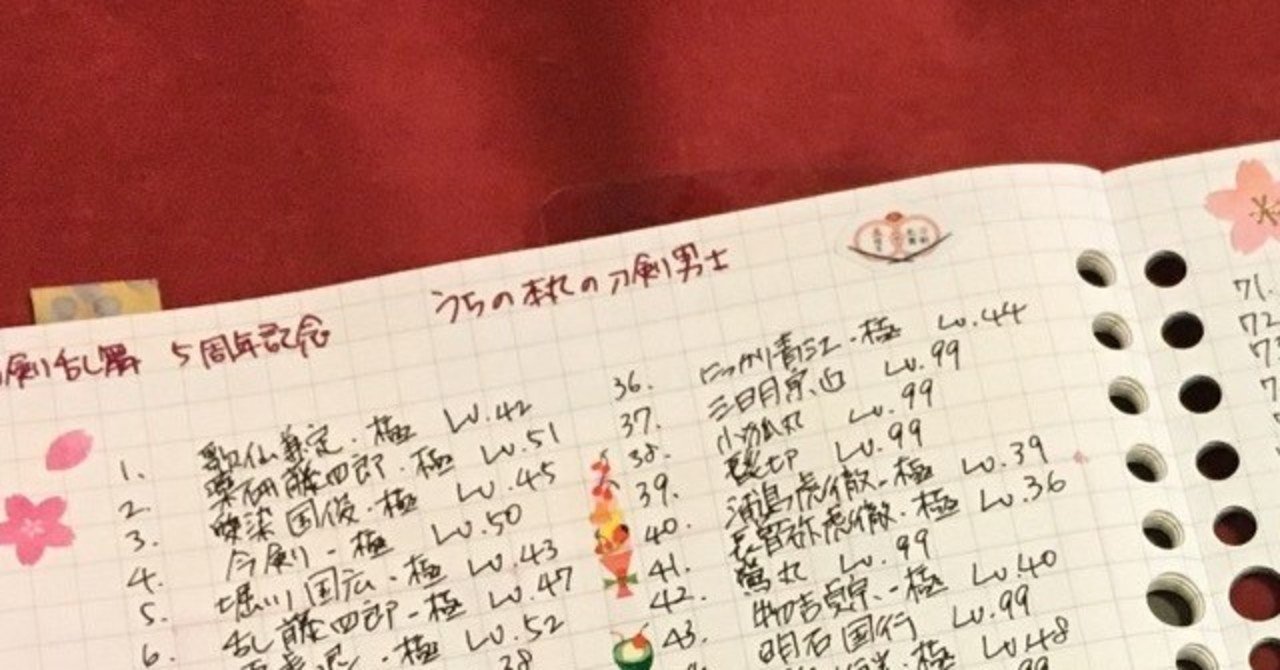 剣乱舞 5周年記念
うちの本丸の刀剣男士
1. 歌仙兼定・極 Lv.42
2. 薬研藤四郎・極 Lv.51
3. 愛染国俊・極 Lv.45
4. 今剣・極 Lv.50
5. 堀川国広・極 Lv.43
6. 乱藤四郎・極 Lv.47
Lv.52
38
36. にっかり青江・極 Lv.44
37. 三日月宗近 Lv.99
38. 小狐丸 Lv.99
39. Lv.99
40. 浦島虎徹・極 Lv.39
41. 長曽祢虎徹・極 Lv.36
42. 鶯丸 Lv.99
43. 物吉貞宗・極 Lv.40
明石国行 Lv.99
Lv.48
99
71.
72.